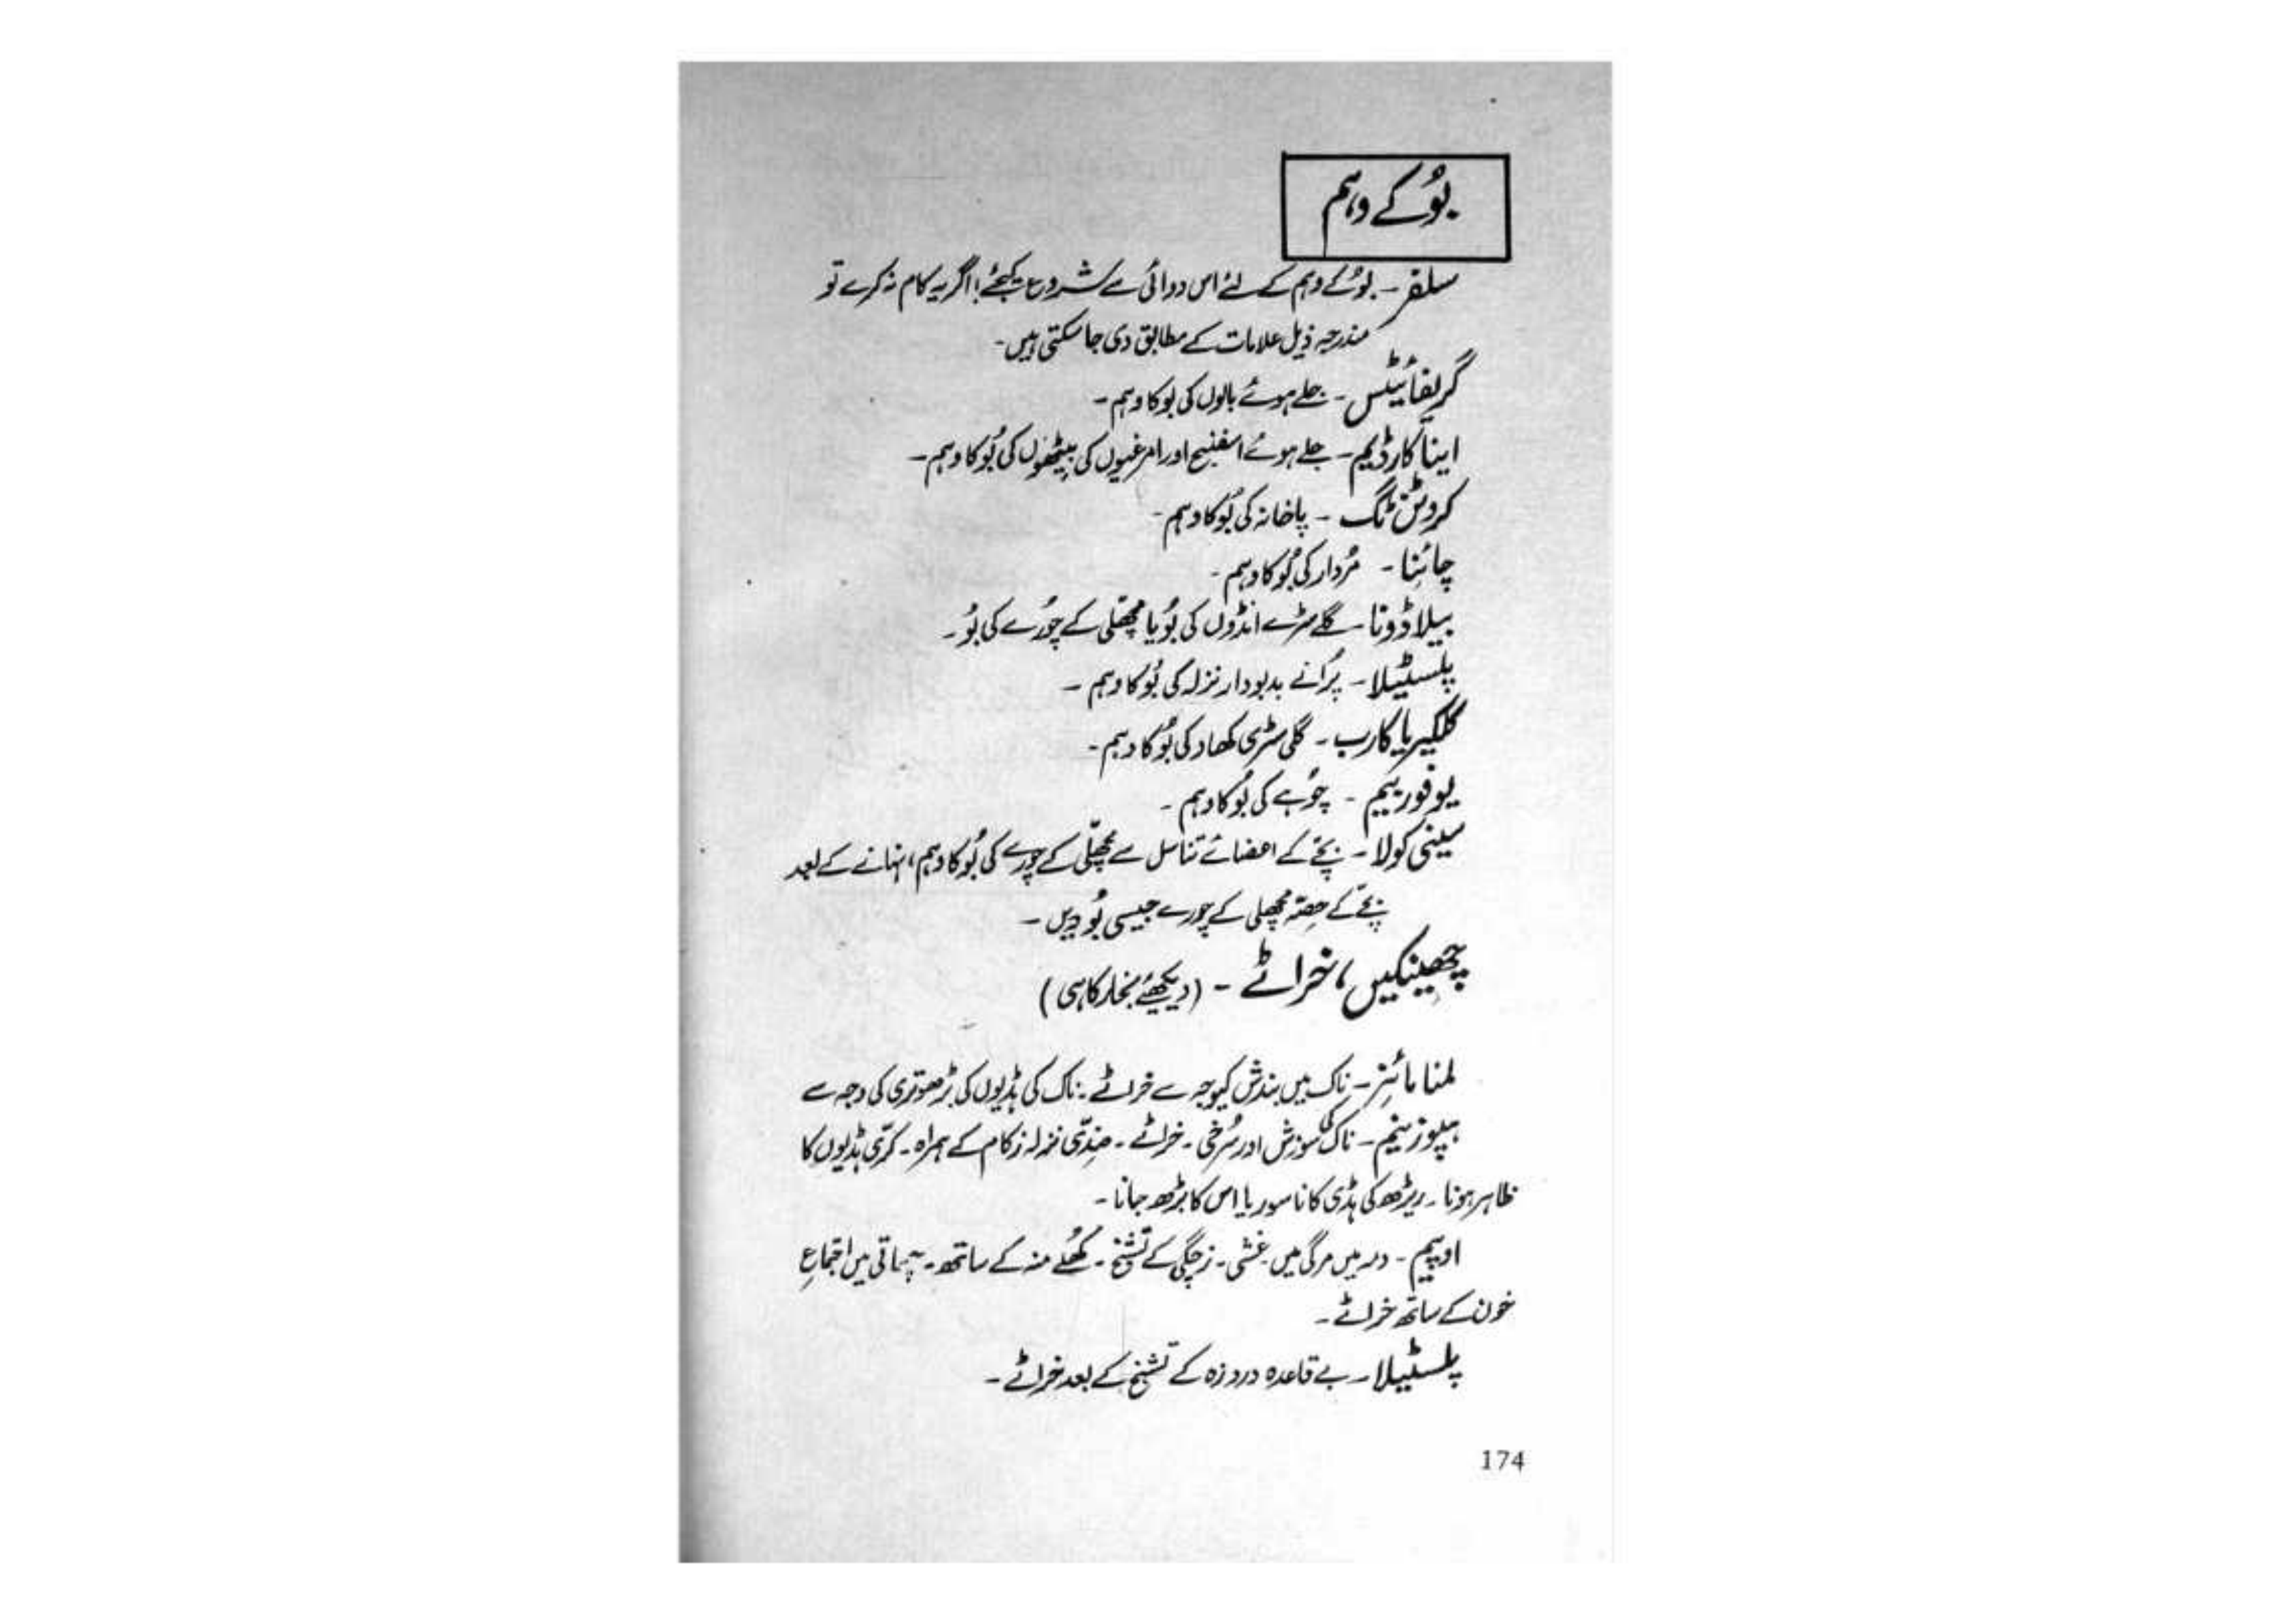 بُو کے وہم
سلفر - بُو کے وہم کے لئے اس دوائی سے شروع کیجئے؛ اگر یہ کام نہ کرے تو
مندرجہ ذیل علامات کے مطابق دی جا سکتی ہیں -
گریفائیٹس - جلے ہوئے بالوں کی بو کا وہم -
اینا کارڈیم - جلے ہوئے اسفنج اور امرغیوں کی بیٹھوں کی بُو کا وہم -
کروٹن ٹگ - پاخانہ کی بُو کا وہم -
چائنا - مُردار کی بُو کا وہم -
بیلاڈونا - گلے سڑے انڈوں کی بُو یا مچھلی کے چُورے کی بُو -
پلسٹیلا - پُرانے بدبودار نزلہ کی بُو کا وہم -
کلکیریا کارب - گلی سڑی کھاد کی بُو کا وہم -
یوفوربیم - چُوہے کی بُو کا وہم -
سینی کولا - بچّے کے اعضائے تناسل سے مچھلی کے چورے کی بُو کا وہم، نہانے کے بعد
بچّے کے حصّہ مچھلی کے چورے جیسی بُو دیں -
چھینکیں، خراٹے - (دیکھئے بخار کاہی)
لمنا مائنر - ناک میں بندش کیوجہ سے خراٹے - ناک کی ہڈیوں کی بڑھوتری کی وجہ سے
ہپوزینم - ناک کی سوزش اور سُرخی - خراٹے - ضِدّی نزلہ زکام کے ہمراہ - کرّی ہڈیوں کا
ظاہر ہونا - ریڑھ کی ہڈی کا ناسور یا اس کا بڑھ جانا -
اوپیم - دمہ میں مرگی میں غشی - زچگی کے تشنّج - کُھلے منہ کے ساتھ - چھاتی میں اجتماعِ
خون کے ساتھ خراٹے -
پلسٹیلا - بے قاعدہ درد زہ کے تشنّج کے بعد خراٹے -
174